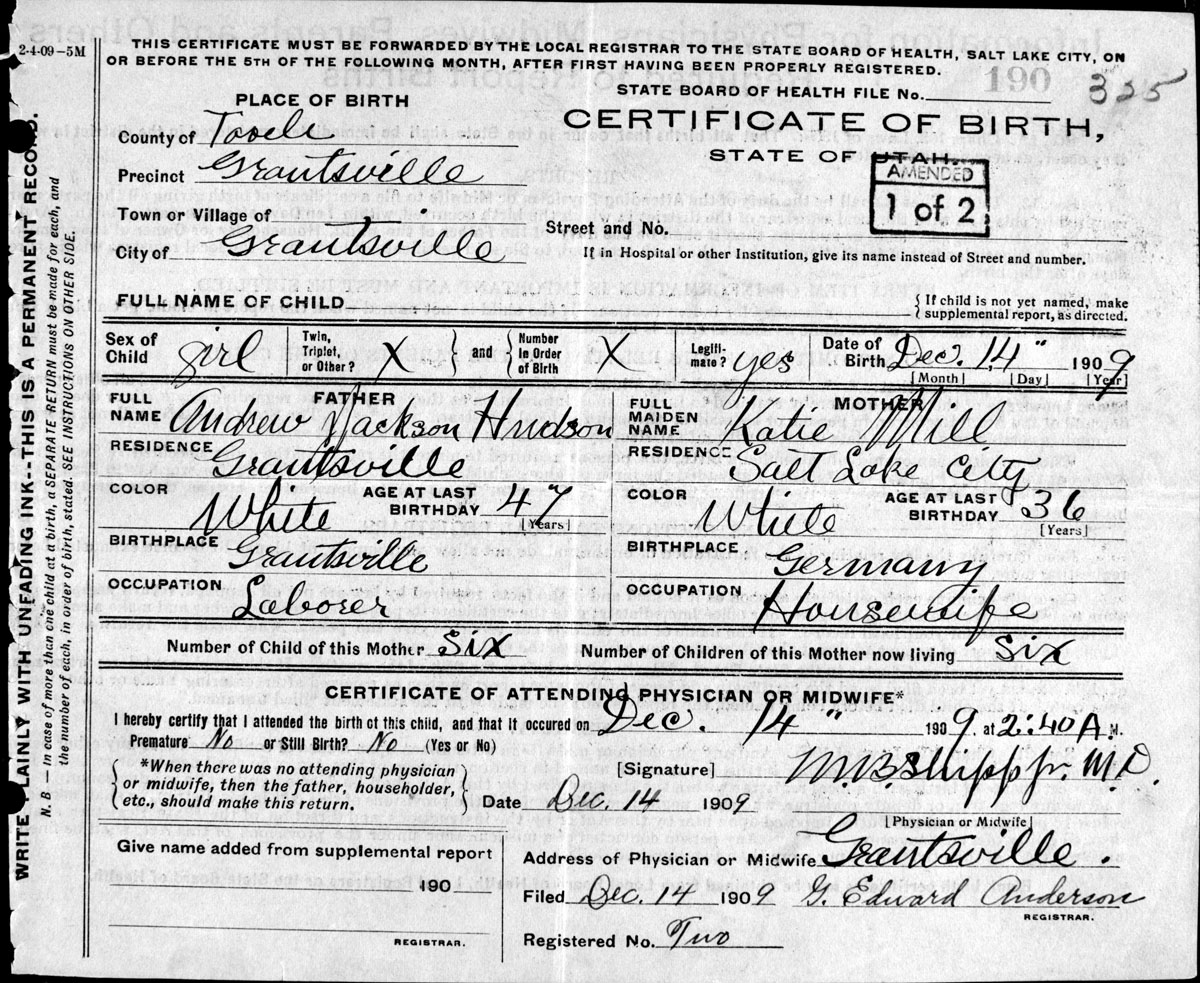 2-4-09-5M
THIS CERTIFICATE MUST BE FORWARDED BY THE LOCAL REGISTRAR TO THE STATE BOARD OF HEALTH, SALT LAKE CITY, ON
OR BEFORE THE 5TH OF THE FOLLOWING MONTH, AFTER FIRST HAVING BEEN PROPERLY REGISTERED.
STATE BOARD OF HEALTH FILE No. 190 325
PLACE OF BIRTH
CERTIFICATE OF BIRTH,
STATE OF UTAH.
AMENDED
1 of 2
County of Tooele
Precinct Grantsville
Town or Village of
Street and No.
City of Grantsville
If in Hospital or other Institution, give its name instead of Street and number.
FULL NAME OF CHILD
{ If child is not yet named, make
supplemental report, as directed.
Sex of Child girl Twin, Triplet, or Other? X } and { Number in Order of Birth X Legiti-mate? yes Date of Birth Dec. 14" 1909
[Month] [Day] [Year]
FATHER
FULL NAME Andrew Jackson Hudson
MOTHER
FULL MAIDEN NAME Katie Mill
RESIDENCE Grantsville
RESIDENCE Salt Lake City
COLOR White AGE AT LAST BIRTHDAY 47 [Years]
COLOR White AGE AT LAST BIRTHDAY 36 [Years]
BIRTHPLACE Grantsville
BIRTHPLACE Germany
OCCUPATION Laborer
OCCUPATION Housewife
Number of Child of this Mother six Number of Children of this Mother now living six
CERTIFICATE OF ATTENDING PHYSICIAN OR MIDWIFE*
I hereby certify that I attended the birth of this child, and that it occured on Dec. 14" 1909. at 2:40 A.M.
Premature No or Still Birth? No (Yes or No)
{ *When there was no attending physician
or midwife, then the father, householder,
etc., should make this return. }
[Signature] M.B. Shipp jr. M.D.
Date Dec. 14 1909
[Physician or Midwife]
Give name added from supplemental report
190
REGISTRAR.
Address of Physician or Midwife Grantsville.
Filed Dec. 14 1909 G. Edward Anderson
REGISTRAR.
Registered No. Two
WRITE PLAINLY WITH UNFADING INK--THIS IS A PERMANENT RECORD.
N. B — In case of more than one child at a birth, a SEPARATE RETURN must be made for each, and
the number of each, in order of birth, stated. SEE INSTRUCTIONS ON OTHER SIDE.